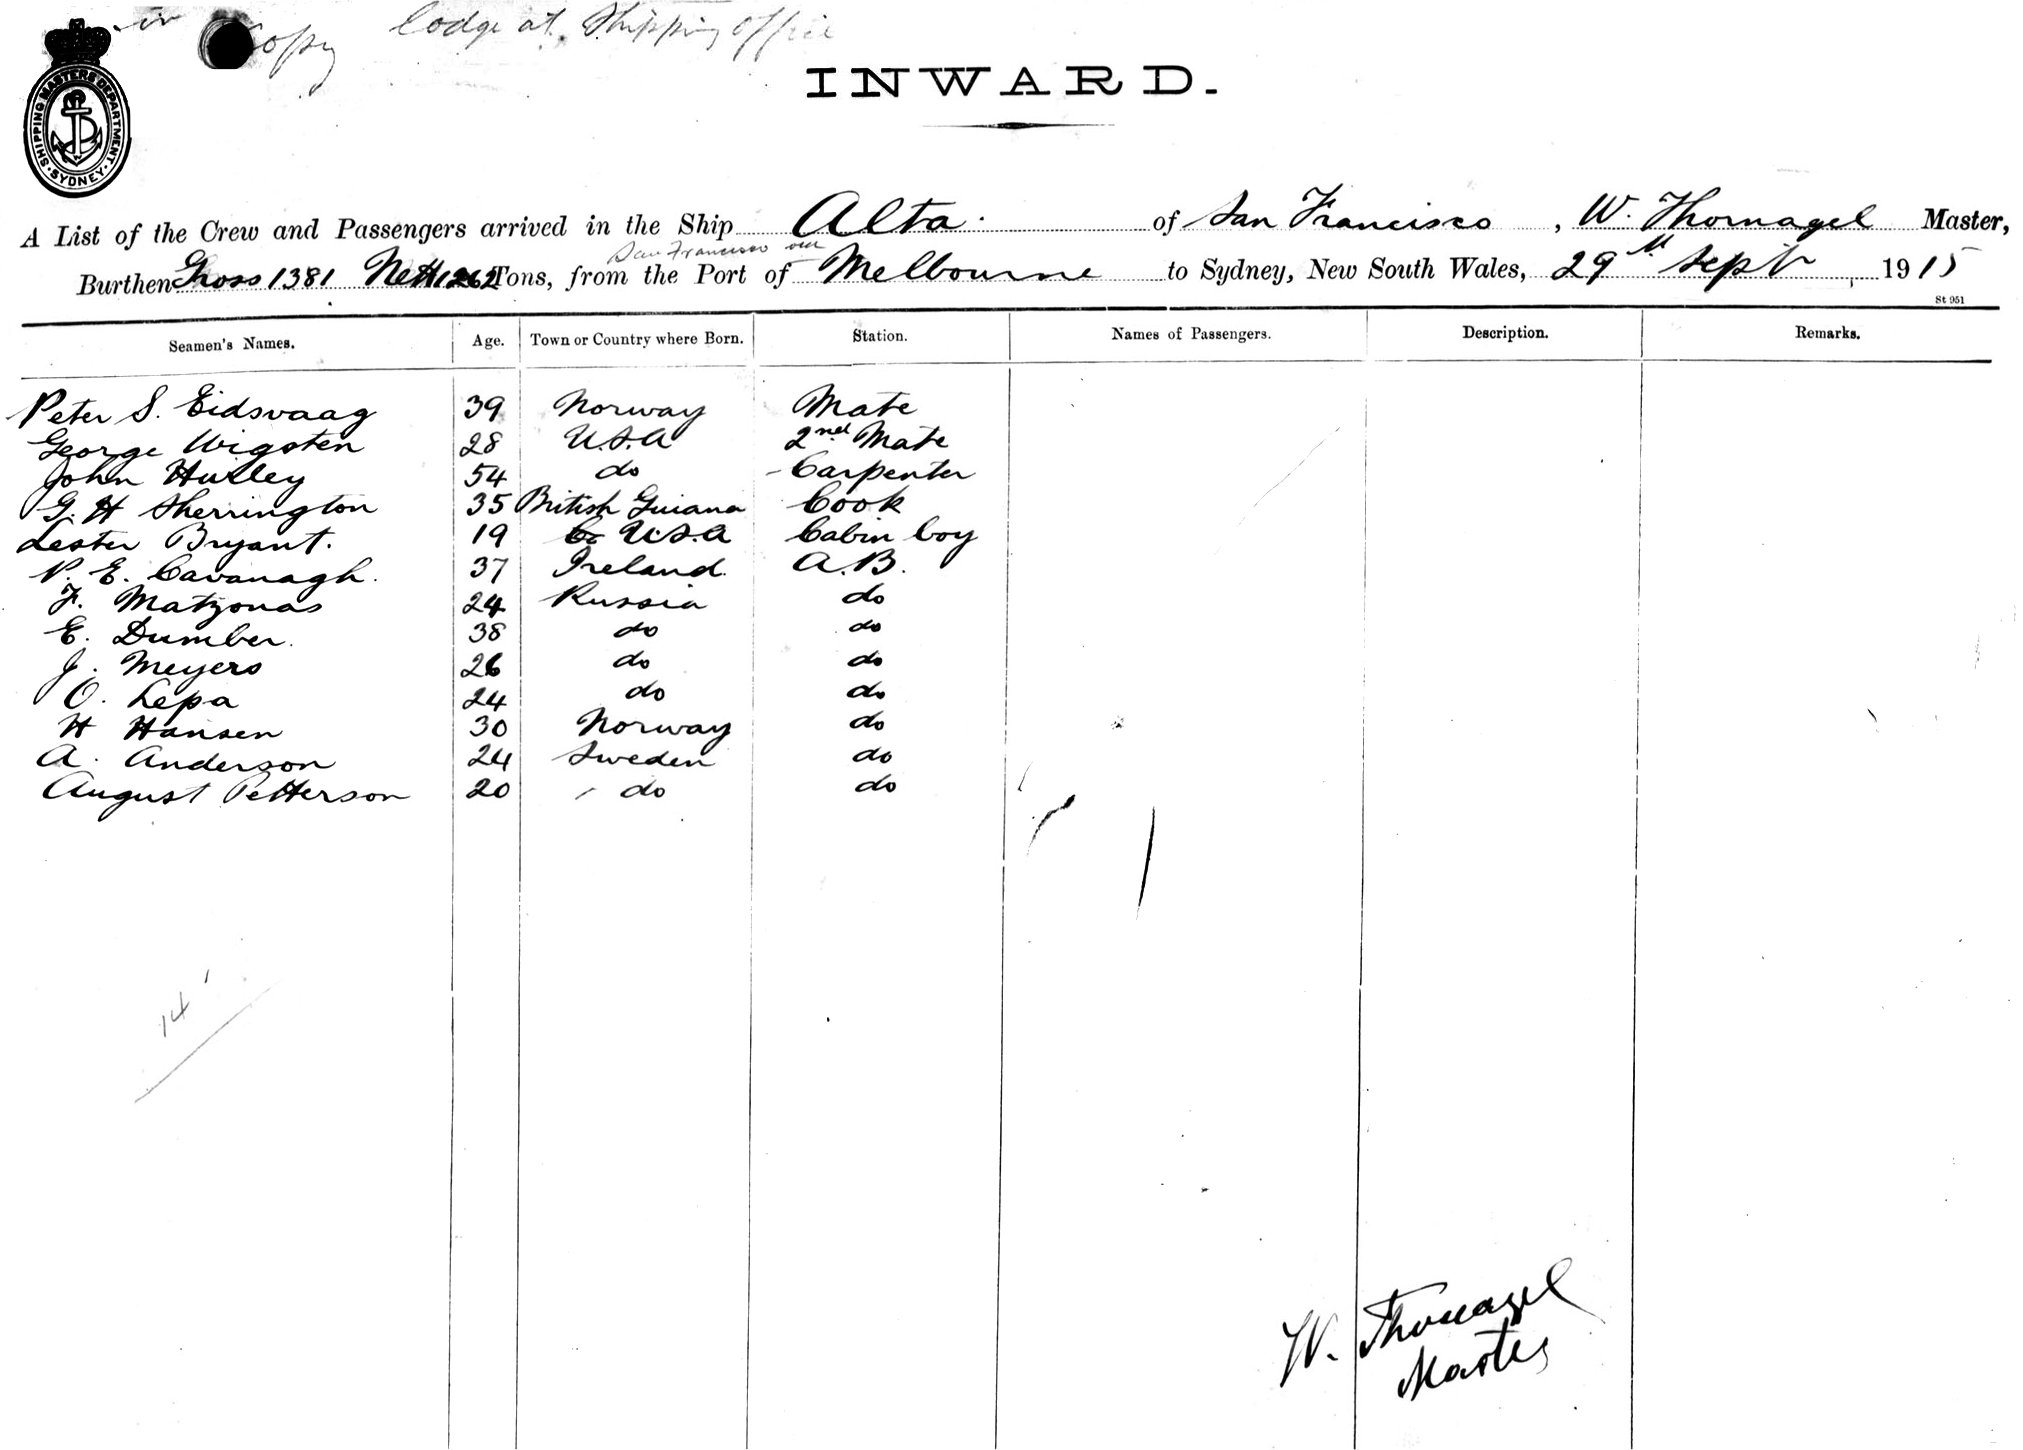 in Copy lodge at Shipping Office
SHIPPING MASTERS DEPARTMENT. SYDNEY.
INWARD.
A List of the Crew and Passengers arrived in the Ship Alta. of San Francisco, W. Thornagel Master,
San Francisco via
Burthen Gross 1381 Nett 1262 Tons, from the Port of Melbourne to Sydney, New South Wales, 29th Sept, 1915
St 951
Seamen's Names. Age. Town or Country where Born. Station. Names of Passengers. Description. Remarks.
Peter S. Eidsvaag 39 Norway Mate
George Wigsten 28 U.S.A 2nd Mate
John Huxley 54 do Carpenter
G. H Sherrington 35 British Guiana Cook
Lester Bryant. 19 U.S.A Cabin boy
P. E. Cavanagh. 37 Ireland. A.B.
F. Matzonas 24 Russia do
E. Dumber. 38 do do
J. Meyers 26 do do
O. Lepa 24 do do
H Hansen 30 Norway do
A. Anderson 24 Sweden do
August Petterson 20 do do
14
W. Thornagel
Master